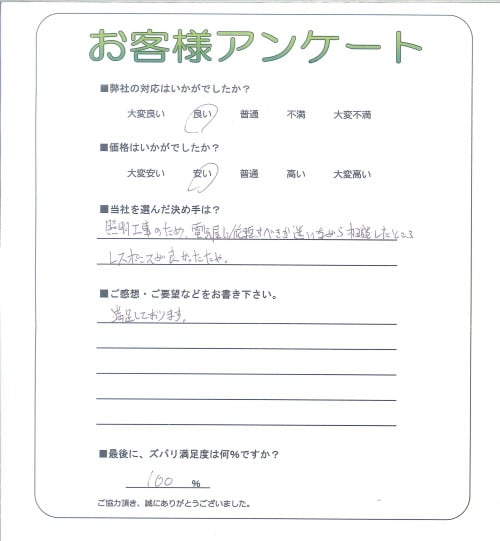 お客様アンケート
■弊社の対応はいかがでしたか？
大変良い 良い 普通 不満 大変不満
■価格はいかがでしたか？
大変安い 安い 普通 高い 大変高い
■当社を選んだ決め手は？
照明工事のため、電気屋に依頼すべきか迷いながら相談したところ
レスポンスが良かったため。
■ご感想・ご要望などをお書き下さい。
満足しております。
■最後に、ズバリ満足度は何％ですか？
100 %
ご協力頂き、誠にありがとうございました。